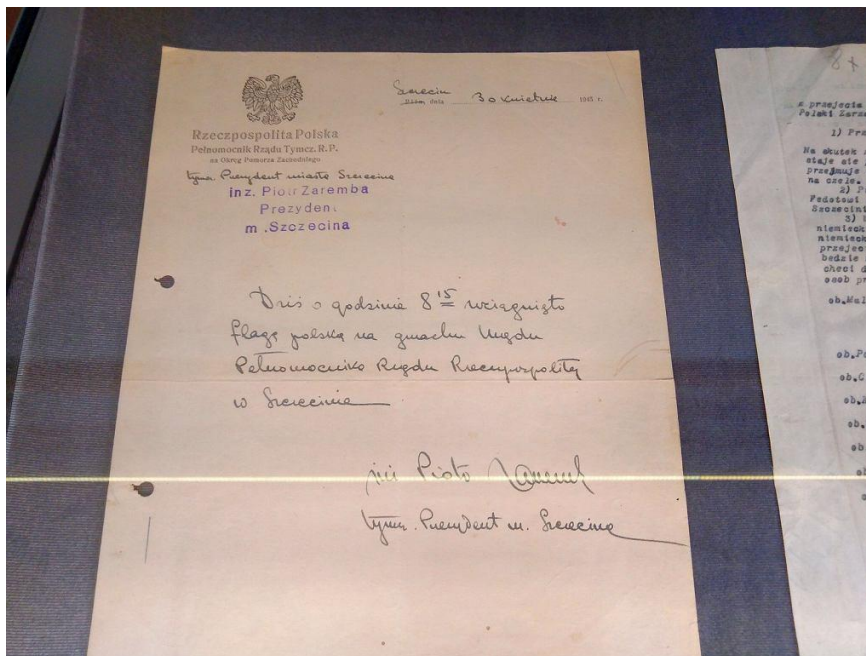 Szczecin
dnia 30 kwietnia 1945 r.
Rzeczpospolita Polska
Pełnomocnik Rządu Tymcz. R.P.
na Okręg Pomorza Zachodniego
tymcz. Prezydent miasta Szczecina
inż. Piotr Zaremba
Prezydent
m .Szczecina
Dziś o godzinie 8 15 wciągnięto
flagę polską na gmachu Urzędu
Pełnomocnika Rządu Rzeczypospolitej
w Szczecinie
inż Piotr Zaremba
tymcz. Prezydent m. Szczecina
8
z przejęcia
Polski Zarzą
1) Prz
Na skutek
staje się
przejmuje
na czele.
2) P
Fedotowi
Szczecini
3)
niemieck
niemieck
przejęc
będzie
chęci d
osób pr
ob.Mal
ob.Po
ob.C
ob.
ob.
ob